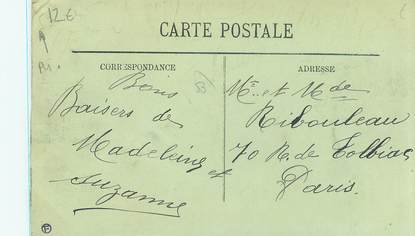 12€
CARTE POSTALE
CORRESPONDANCE
ADRESSE
Bons
Baisers de
Madeleine et
Suzanne
Mr et Mde
Ribouleau
70 R. de Tolbiac
Paris.